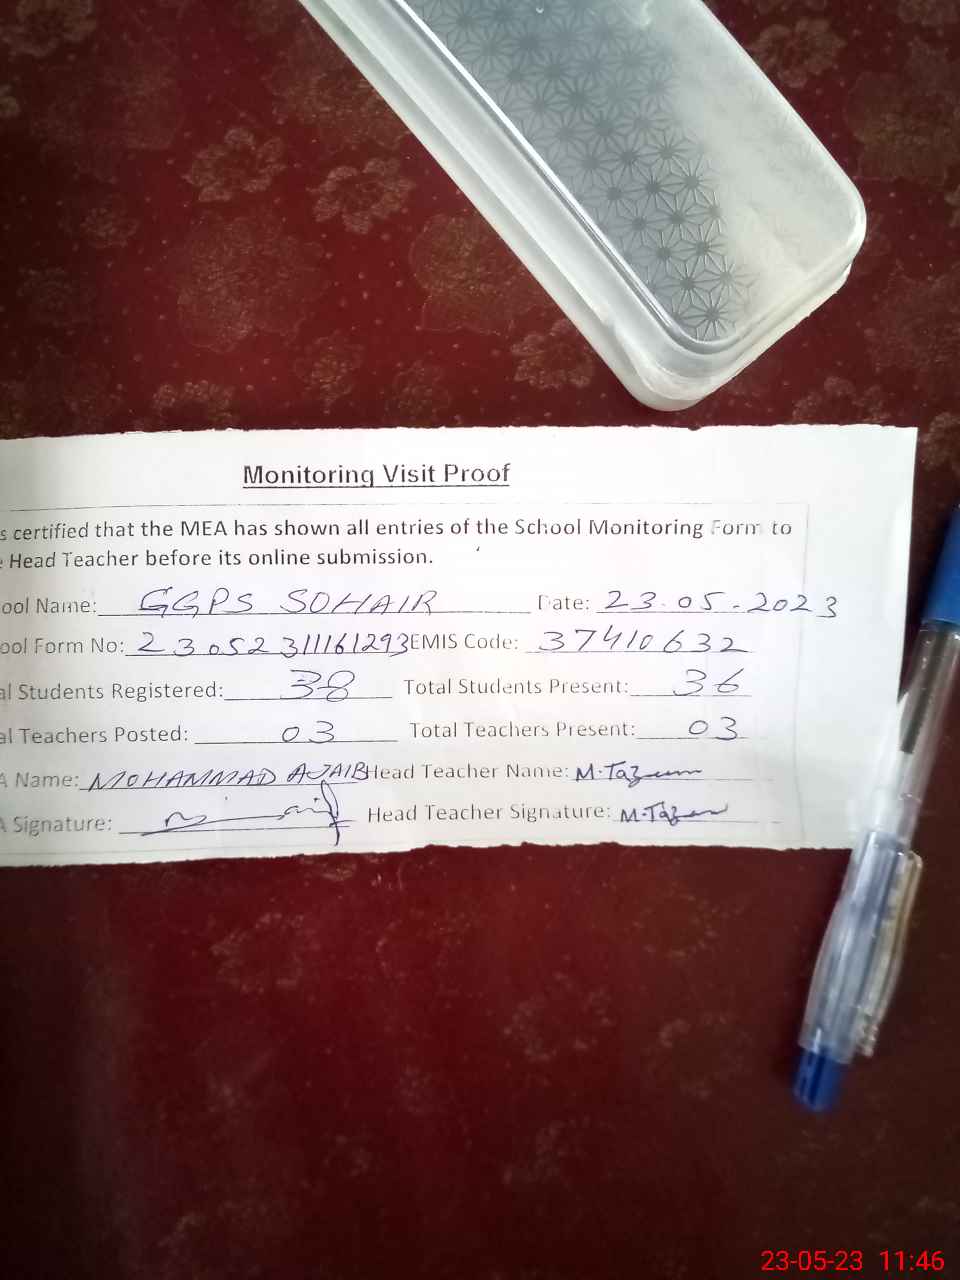 Monitoring Visit Proof
s certified that the MEA has shown all entries of the School Monitoring Form to
e Head Teacher before its online submission.
ool Name: GGPS SOHAIR Date: 23.05.2023
ool Form No: 23052311161293 EMIS Code: 37410632
al Students Registered: 38 Total Students Present: 36
al Teachers Posted: 03 Total Teachers Present: 03
A Name: MOHAMMAD AJAIB Head Teacher Name: M.
A Signature: Head Teacher Signature: M.
23-05-23 11:46